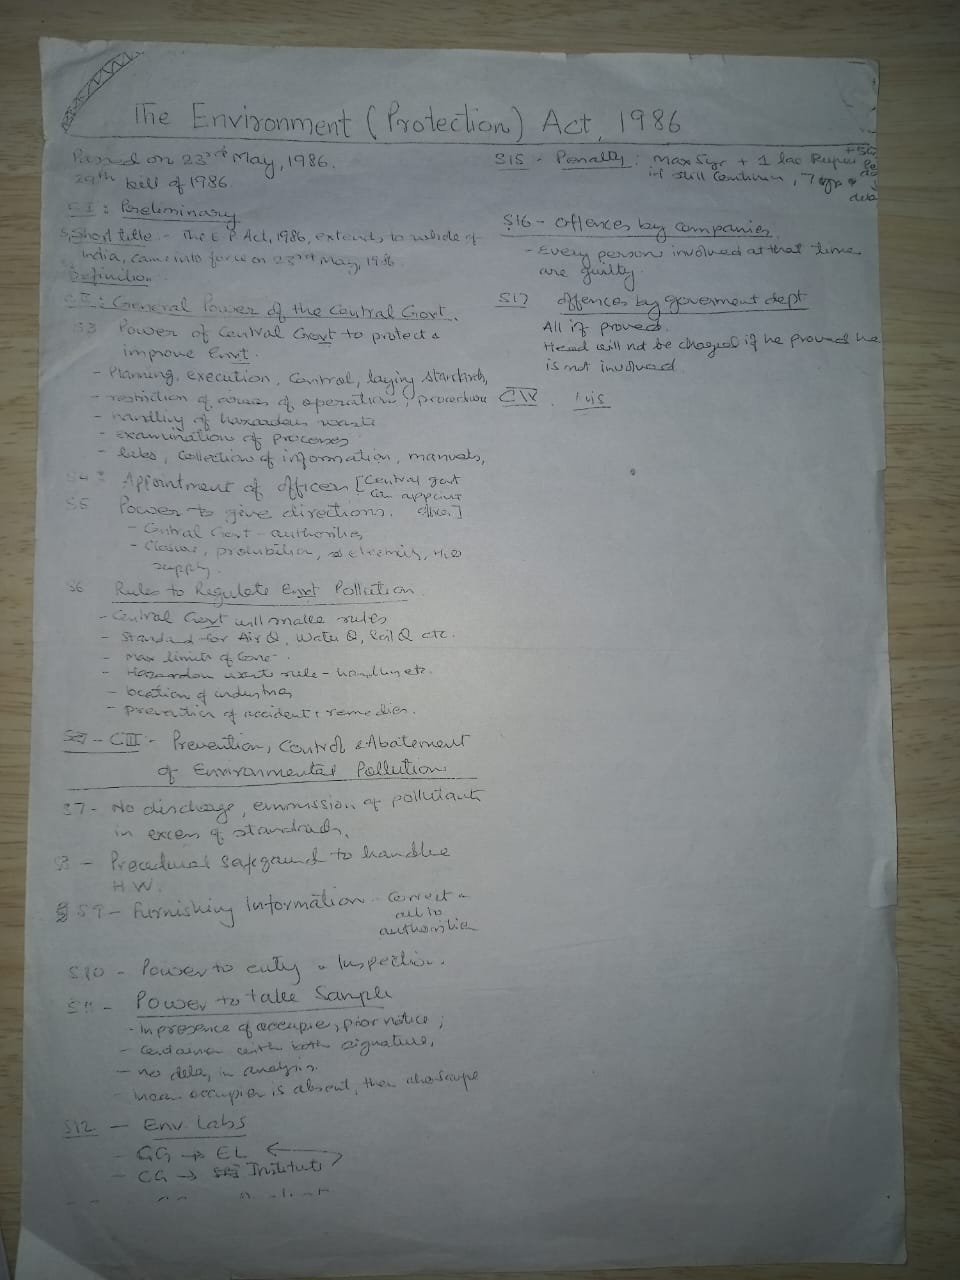 The Environment (Protection) Act, 1986
Passed on 23rd May, 1986.
29th bill of 1986.
CI : Preliminary
S, Short title - The E P Act, 1986, extends to whole of
India, came into force on 23rd May, 1986
Definition
CII : General Power of the Central Govt.
S3 Power of Central Govt to protect &
improve Envt.
- Planning, execution, control, laying standards,
- restriction of areas of operation, procedure
- handling of hazardous waste
- examination of processes
- labs, collection of information, manuals,
S4 : Appointment of officers [Central govt
can appoint
S5 Power to give directions.
- Central Govt - authorities
- Closure, prohibition, electricity,
supply.
S6 Rules to Regulate Envt Pollution
- Central Govt will make rules
- Standard for Air Q, Water Q, Soil Q etc.
- Max limits of Conc.
- Hazardous waste rule - handling etc.
- location of industries
- prevention of accident & remedies.
S7 - CIII - Prevention, Control & Abatement
of Environmental Pollution
S7 - No discharge, emmission of pollutants
in excess of standards.
S8 - Procedural safeguard to handle
H W.
S9 - Furnishing Information - correct
authorities
S10 - Power to entry & Inspection.
S11 - Power to take Sample
- In presence of occupier, prior notice ;
- Container with both signature,
- no delay in analysis.
- occupier is absent, then
S12 - Env. Labs
- CG → EL
- CG → Institute
S15 - Penalty : Max 5yr + 1 lac Rupee
if still continues, 7 yr
S16 - offences by companies
- Every person involved at that time
are guilty.
S17 offences by goverment dept
All if proved.
Head will not be charged if he proved he
is not involved.
CIV.